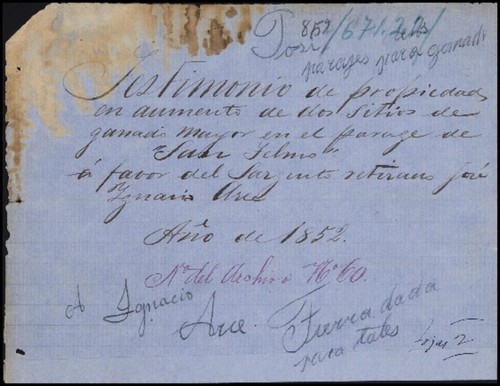 852/671.2.2/
Posi
parajes para ganado
Testimonio de propiedad
en aumento de dos sitios de
ganado mayor en el parage de
"San Telmo"
á favor del Sargento retirado José
Ygnacio Arce
Año de 1852.
No. del Archivo No. 60.
A Ignacio
Arce. Tierra dada
para tales
fojas 2